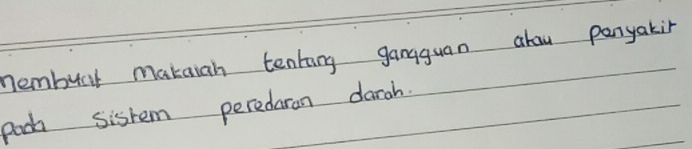 membuat makalah tentang gangguan atau penyakit
pada sistem peredaran darah.